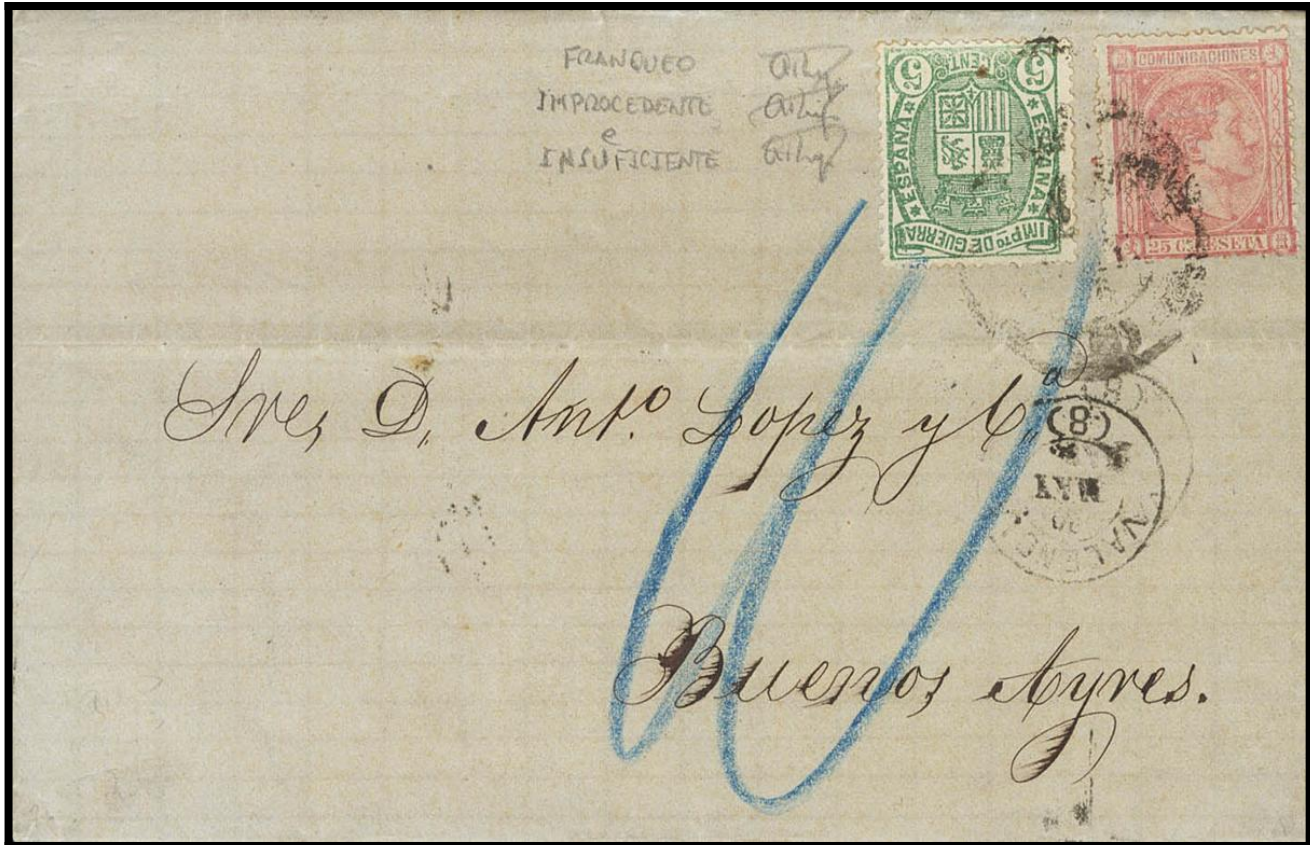 FRANQUEO
IMPROCEDENTE
e
INSUFICIENTE
5 CENT 5
★ ESPAÑA ★ ESPAÑA ★
IMPTO DE GUERRA
COMUNICACIONES
25 C. PESETA
Sres D. Anto. Lopez y Ca
(8)
MAY
VALENC
Buenos Ayres.